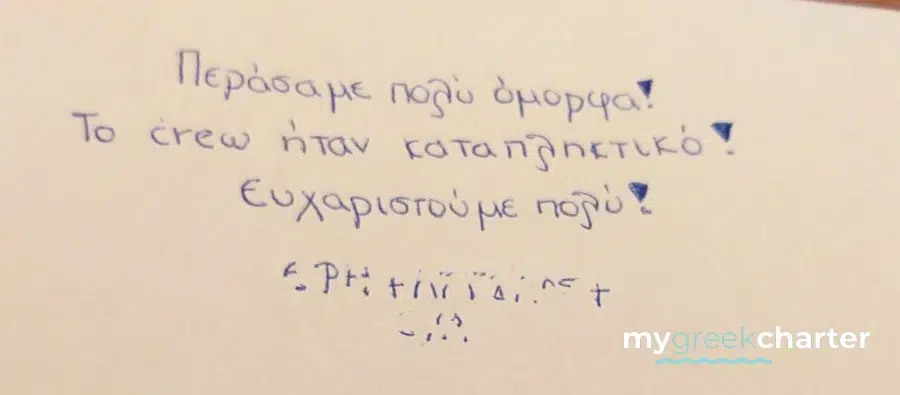 Περάσαμε πολύ όμορφα!
Το crew ήταν καταπληκτικό!
Ευχαριστούμε πολύ!
mygreekcharter